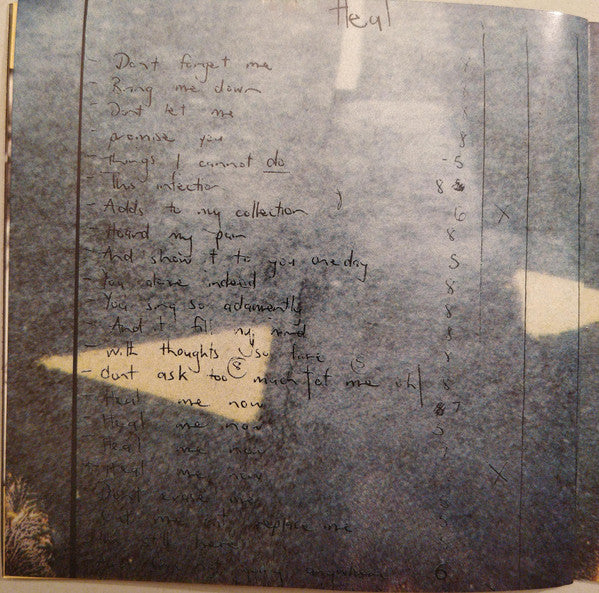 Heal
- Dont forget me
- Bring me down
- Dont let me
- promise you
- Things I cannot do -5
- This infection 8
- Adds to my collection 6 X
- Hoard my pain 8
- And show it to you one day 5
- You alone indeed 8
- You sing so adamently 8
- And it fills my mind 8
- with thoughts so
- dont ask too much of me oh 8
- Heal me now 7
- Heal me now
- Heal me now
- Heal me now X
- Dont erase me 8
replace me
still here
6